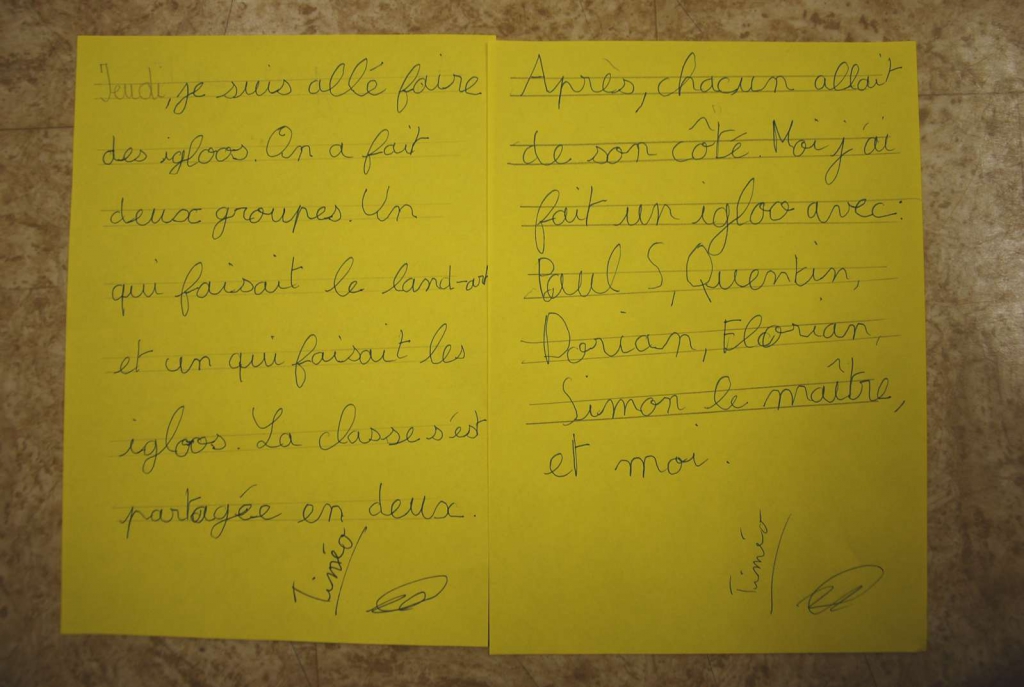 Jeudi, je suis allé faire
des igloos. On a fait
deux groupes. Un
qui faisait le land-art
et un qui faisait les
igloos. La classe s'est
partagée en deux.
Timéo
Après, chacun allait
de son côté. Moi j'ai
fait un igloo avec:
Paul S, Quentin,
Dorian, Florian,
Simon le maître,
et moi.
Timéo